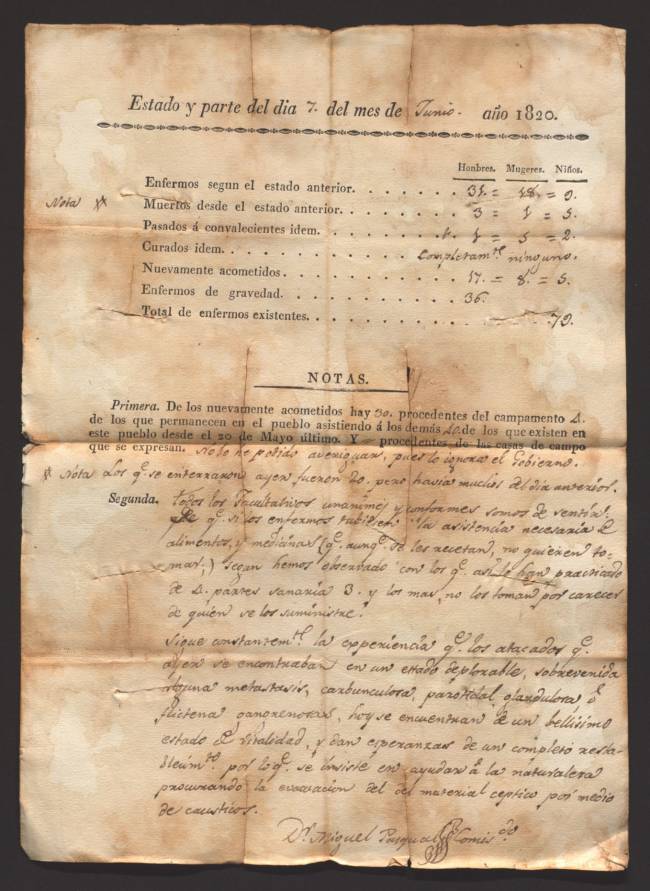 Estado y parte del dia 7. del mes de Junio. año 1820.
Honbres. Mugeres. Niños.
Enfermos segun el estado anterior. 31.= 18.= 9.
Nota Muertos desde el estado anterior. 3 = 1 = 5.
Pasados á convalecientes idem. 1 = 5 = 2.
Curados idem. Completam.te ninguno.
Nuevamente acometidos. 17. = 8. = 5.
Enfermos de gravedad. 36.
Total de enfermos existentes. 79.
NOTAS.
Primera. De los nuevamente acometidos hay 30. procedentes del campamento 4.
de los que permanecen en el pueblo asistiendo á los demás de los que existen en
este pueblo desde el 20 de Mayo último. Y procedentes de las casas de campo
que se expresan. No lo he podido averiguar, pues lo ignora el Gobierno.
Nota Los q.e se enterraron ayer fueron 20. pero havia muchos del dia anterior.
Segunda. Todos los Facultativos unanimes y conformes somos de sentir
q.e si los enfermos tubiesen la asistencia necesaria de
alimentos, y medicinas (q.e aunq.e se les recetan, no quieren to-
mar,) segun hemos observado con los q.e asi lo han practicado
de 4. partes sanaria 3. y los mas, no los toman por carecer
de quien se los suministre.
Sigue constantem.te la experiencia q.e los atacados q.e
ayer se encontraban en un estado deplorable, sobrevenida
alguna metastasis, carbunculosa, parotidal, glandulosa, ó
flictena gangrenosas, hoy se encuentran de un bellisimo
estado de vitalidad, y dan esperanzas de un completo resta-
blecim.to por lo q.e se insiste en ayudar á la naturaleza
procurando la evacuación del del material ceptico por medio
de causticos.
D.r Miguel Pasqual Comis.do